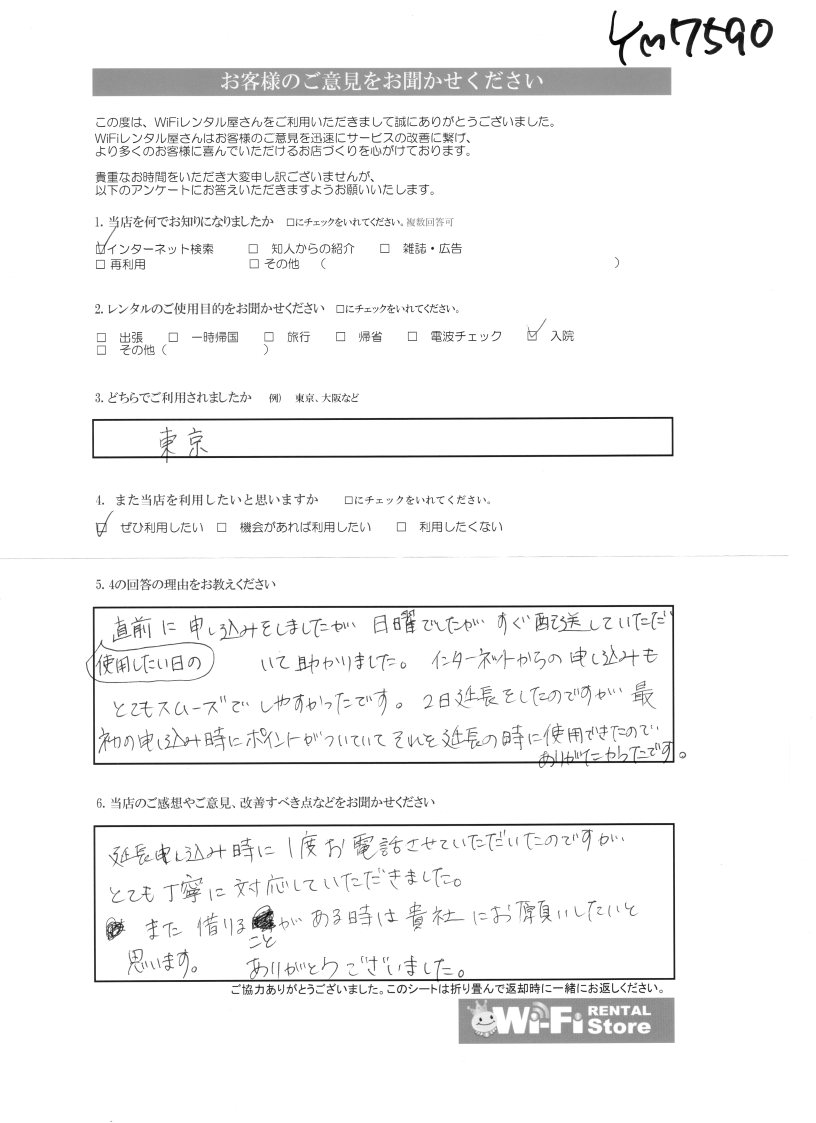 YM7590
お客様のご意見をお聞かせください
この度は、WiFiレンタル屋さんをご利用いただきまして誠にありがとうございました。
WiFiレンタル屋さんはお客様のご意見を迅速にサービスの改善に繋げ、
より多くのお客様に喜んでいただけるお店づくりを心がけております。
貴重なお時間をいただき大変申し訳ございませんが、
以下のアンケートにお答えいただきますようお願いいたします。
1. 当店を何でお知りになりましたか □にチェックをいれてください。複数回答可
☑インターネット検索 □ 知人からの紹介 □ 雑誌・広告
□ 再利用 □ その他 （ ）
2. レンタルのご使用目的をお聞かせください □にチェックをいれてください。
□ 出張 □ 一時帰国 □ 旅行 □ 帰省 □ 電波チェック ☑ 入院
□ その他（ ）
3. どちらでご利用されましたか 例） 東京、大阪など
東京
4. また当店を利用したいと思いますか □にチェックをいれてください。
☑ ぜひ利用したい □ 機会があれば利用したい □ 利用したくない
5. 4の回答の理由をお教えください
直前に申し込みをしましたが 日曜でしたが すぐ配送していただ
使用したい日の いて助かりました。 インターネットからの申し込みも
とてもスムーズで しやすかったです。 2日延長をしたのですが 最
初の申し込み時にポイントがついていて それを延長の時に使用できたので
ありがたかったです。
6. 当店のご感想やご意見、改善すべき点などをお聞かせください
延長申し込み時に 1度お電話させていただいたのですが
とても丁寧に対応していただきました。
また 借りる が ある時は貴社にお願いしたいと
こと
思います。 ありがとうございました。
ご協力ありがとうございました。このシートは折り畳んで返却時に一緒にお返しください。
Wi-Fi RENTAL
Store